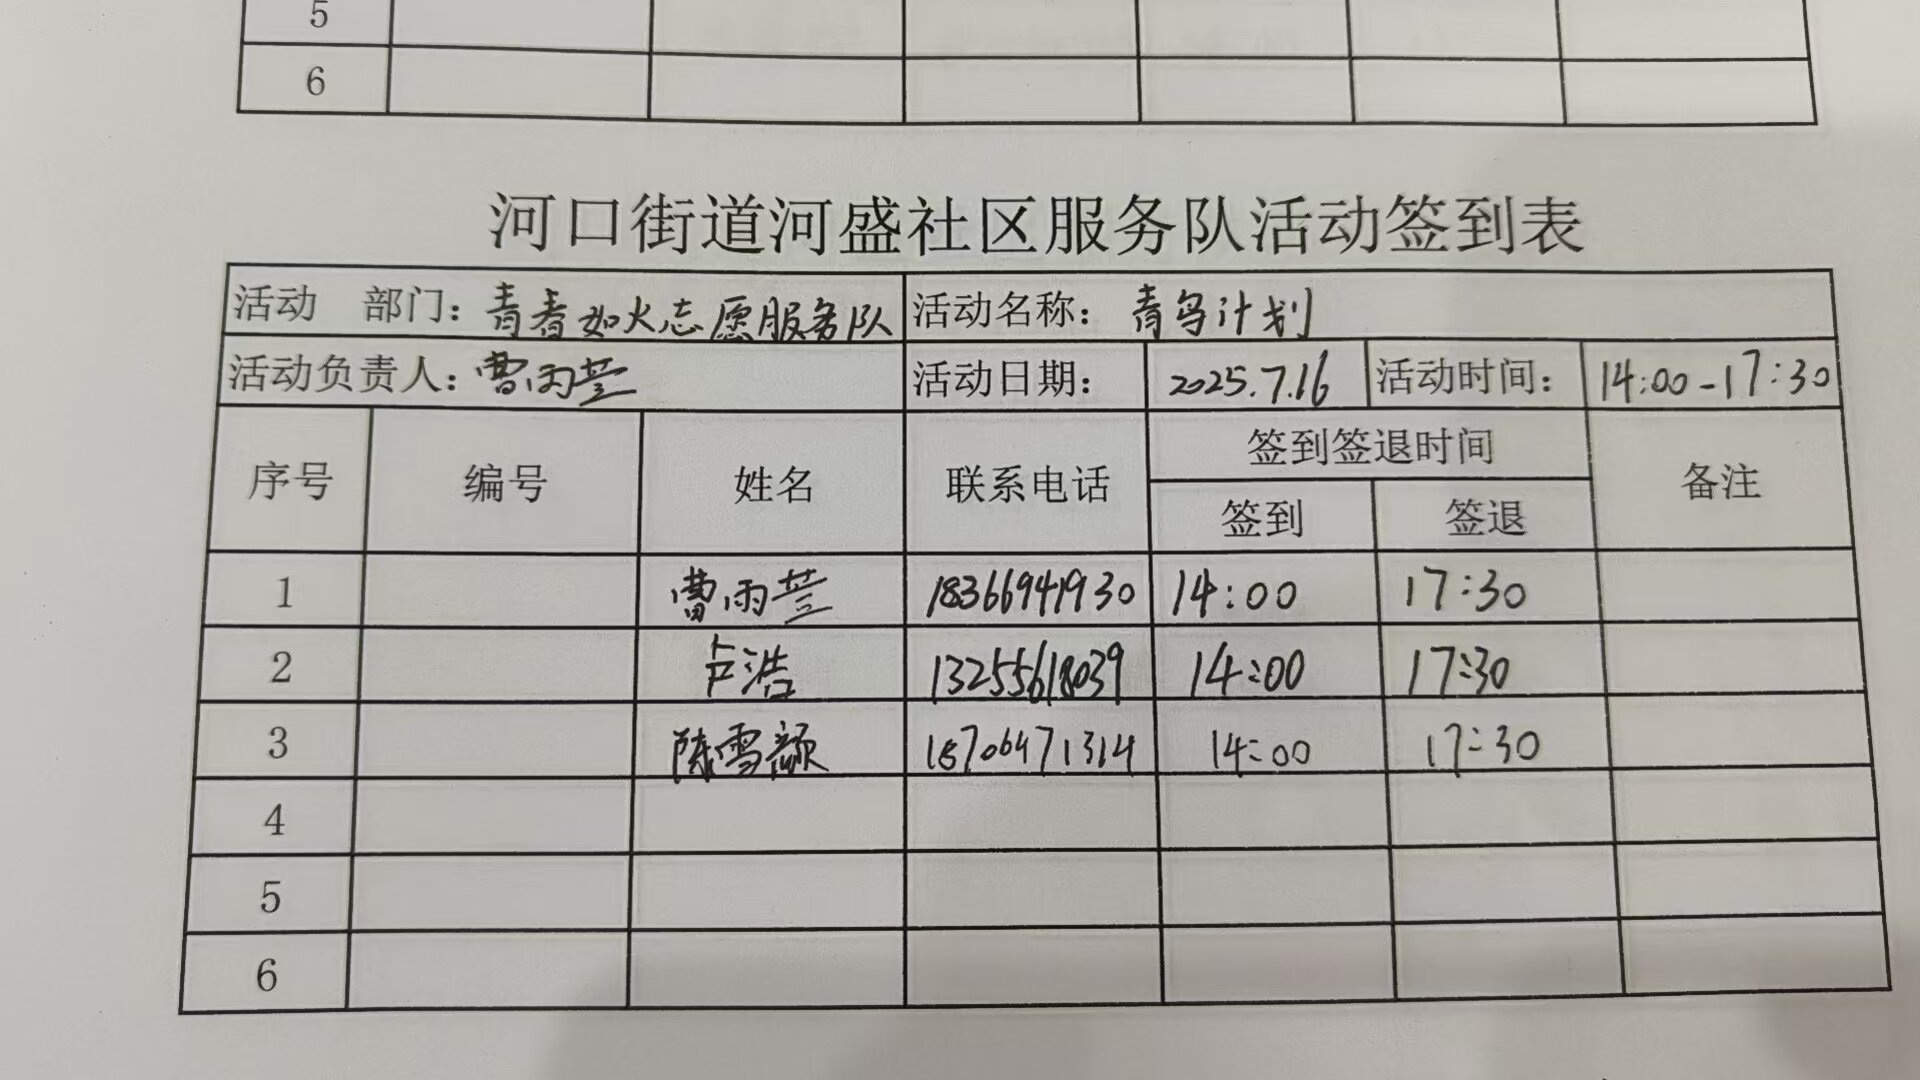 5
6
河口街道河盛社区服务队活动签到表
活动 部门：青春如火志愿服务队 活动名称： 青鸟计划
活动负责人：曹雨萱 活动日期： 2025.7.16 活动时间： 14:00-17:30
序号 编号 姓名 联系电话 签到签退时间 备注
签到 签退
1 曹雨萱 18366941930 14:00 17:30
2 卢浩 13255618039 14:00 17:30
3 陈雪颜 18706471314 14:00 17:30
4
5
6